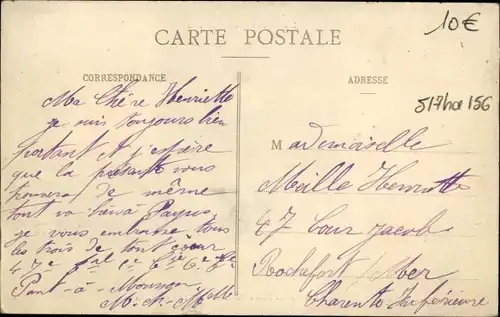 10€
CARTE POSTALE
CORRESPONDANCE
ADRESSE
517ha 156
Ma Chère Henriette
je suis toujours bien
portant et j'espère
que la présente vous
trouvera de même
tout va bien à
je vous embrasse tous
les trois de tout cœur
47e
Pont-à-Mousson
M.-et-Mlle
Mademoiselle
Meille Henriette
47 Cour Jacob
Rochefort s/Mer
Charente Inférieure